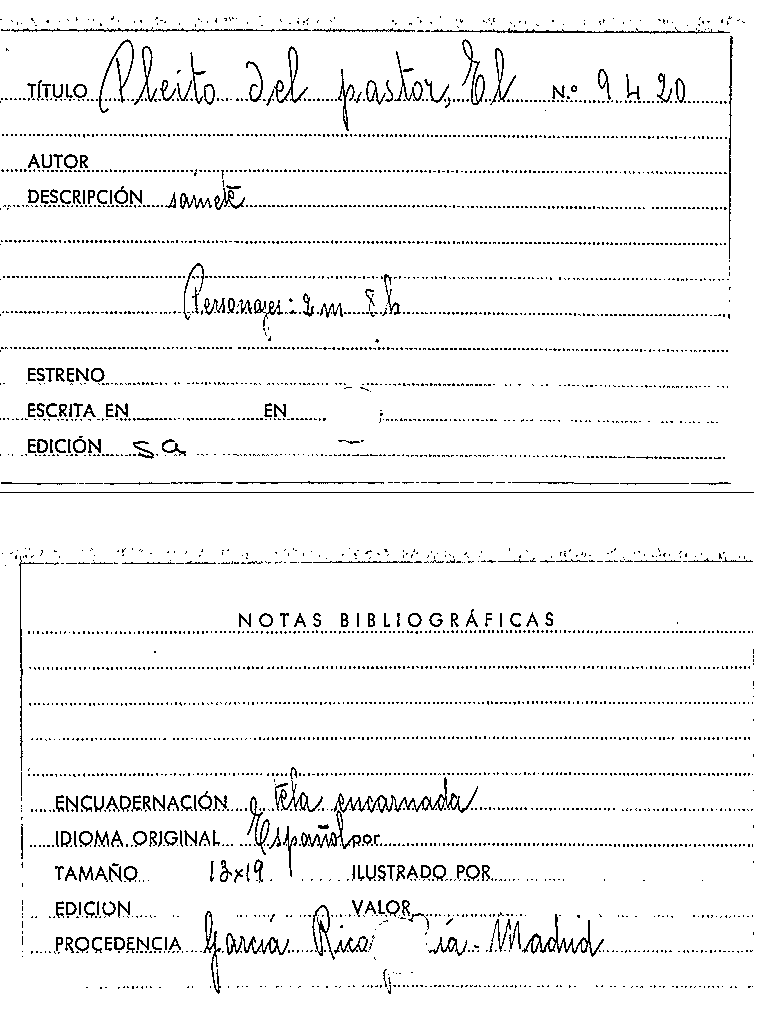 TÍTULO Pleito del pastor, El N.º 9420
AUTOR
DESCRIPCIÓN sainete
Personajes: 2 m 8 h
ESTRENO
ESCRITA EN EN
EDICIÓN sa
NOTAS BIBLIOGRÁFICAS
ENCUADERNACIÓN tela encarnada
IDIOMA ORIGINAL Español por
TAMAÑO 13x19 ILUSTRADO POR
EDICIÓN VALOR
PROCEDENCIA García Rico ía - Madrid